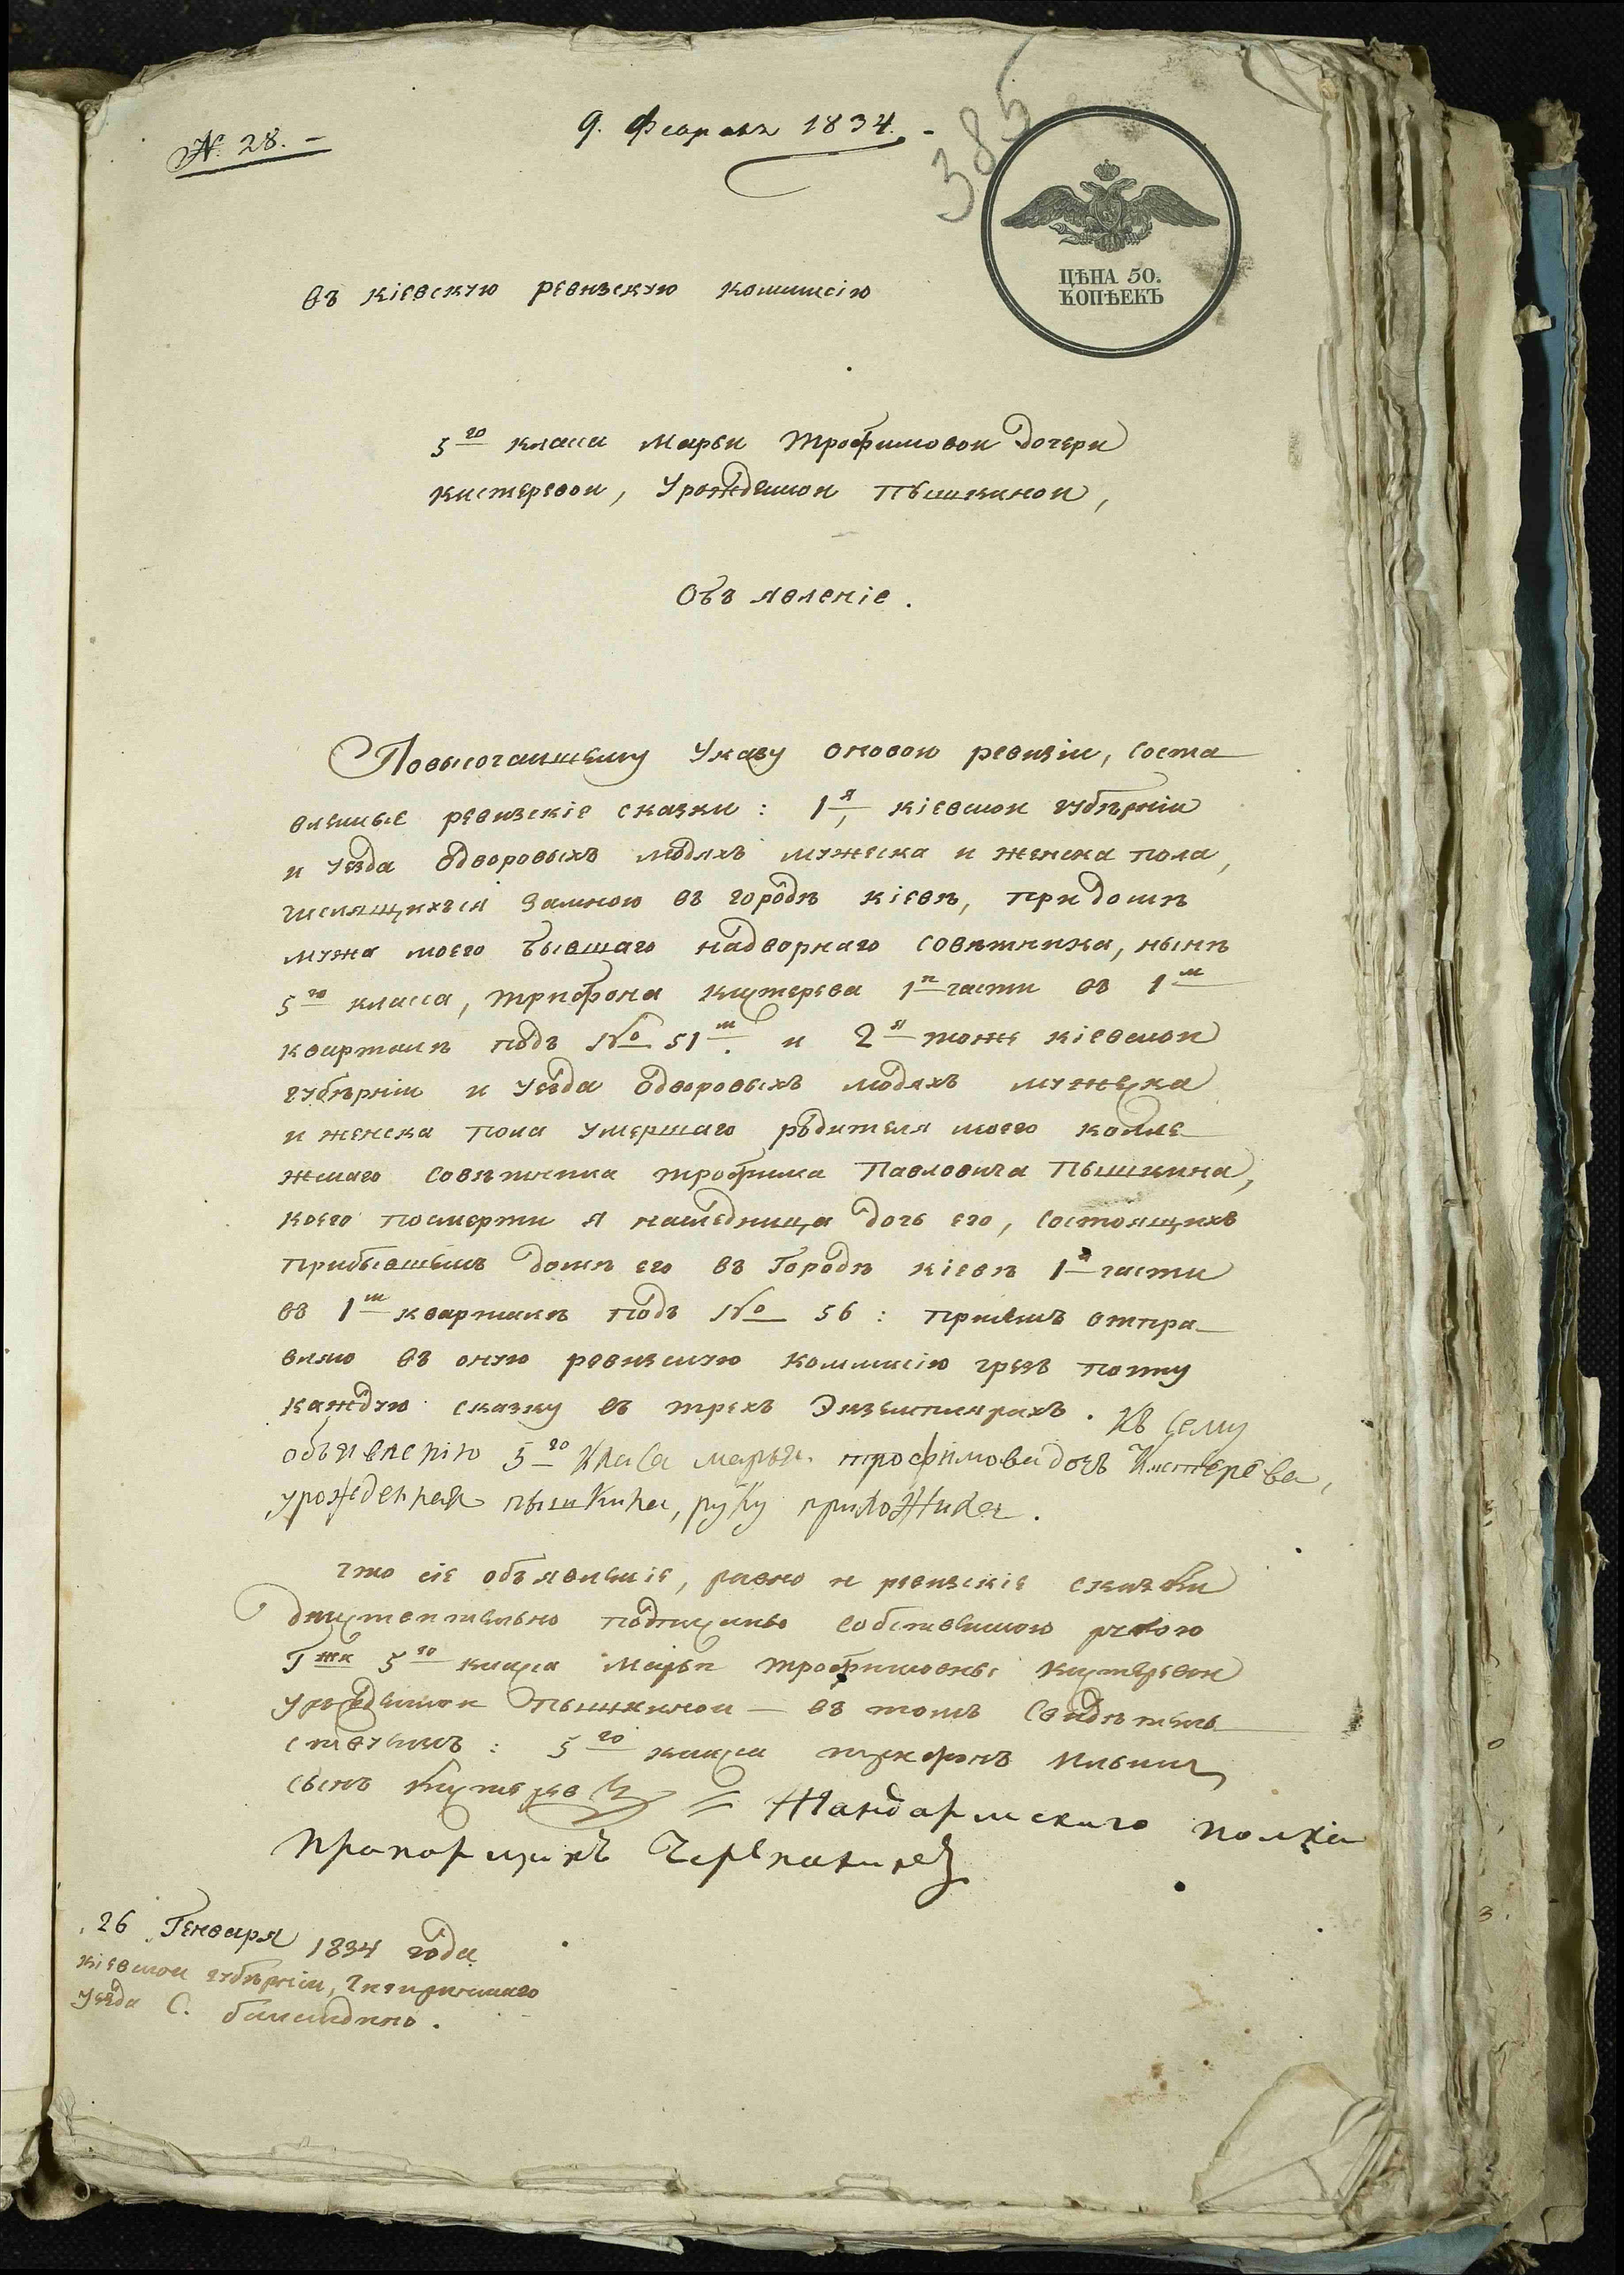 N. 28. –
9. Февраля 1834. –
385
ЦѢНА 50.
КОПѢЕКЪ
въ кіевскую ревизскую коммисію
5го класса Марьи Трофимовой дочери
Кистеревой, Урожденной Пышкиной,
Объявленіе.
Повысочайшему Указу оновой ревизіи, соста
вленные ревизскіе сказки: 1я, кіевской губѣрніи
и уѣзда одворовыхъ людяхъ мужеска и женска пола,
числящихся замною въ городѣ кіевѣ, при домѣ
мужа моего бывшаго надворнаго совѣтника, нынѣ
5го класса, Трифона Кистерева 1й части въ 1м
кварталѣ подъ № 51м. и 2я тоже кіевской
губѣрніи и уѣзда одворовыхъ людяхъ мужеска
и женска пола умершаго родителя моего колле
жскаго совѣтника Трофима Павловича Пышкина,
коего посмерти я наслѣдница дочь его, состоящихъ
прибывшемъ домѣ его въ Городѣ кіевѣ 1й части
въ 1м кварталѣ подъ № 56: присемъ отпра
вляю въ оную ревизскую коммисію чрезъ почту
каждую сказку въ трехъ Экземплярахъ. Къ сему
объявленію 5го класа марья трофимова дочь Кистерева,
урожденная пышкина, руку приложила.
что сіе объявленіе, равно и ревизскіе сказки
дѣйствительно подписаны собственною рукою
Гжи 5го класса Марьи Трофимовны Кистеревой
урожденной Пышкиной – въ томъ Свидѣтель
ствуемъ: 5го класса Трифонъ Ильинъ
сынъ Кистеревъ = Жандармскаго полка
Прапорщикъ
26 Генваря 1834 года
Кіевской губѣрніи, Чигиринскаго
уѣзда С.